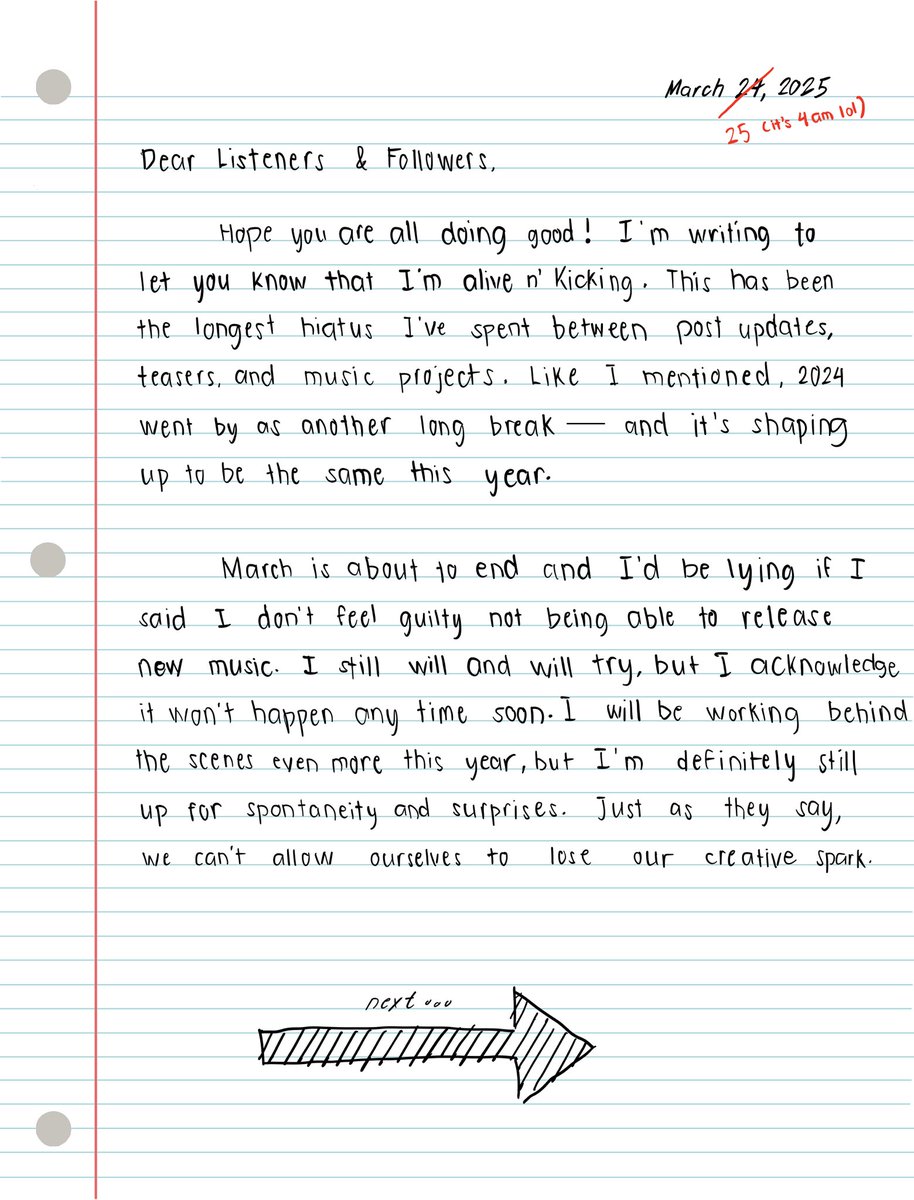 March 24, 2025
25 (it's 4am lol)
Dear Listeners & Followers,
Hope you are all doing good! I'm writing to
let you know that I'm alive n' kicking. This has been
the longest hiatus I've spent between post updates,
teasers, and music projects. Like I mentioned, 2024
went by as another long break — and it's shaping
up to be the same this year.
March is about to end and I'd be lying if I
said I don't feel guilty not being able to release
new music. I still will and will try, but I acknowledge
it won't happen any time soon. I will be working behind
the scenes even more this year, but I'm definitely still
up for spontaneity and surprises. Just as they say,
we can't allow ourselves to lose our creative spark.
next...